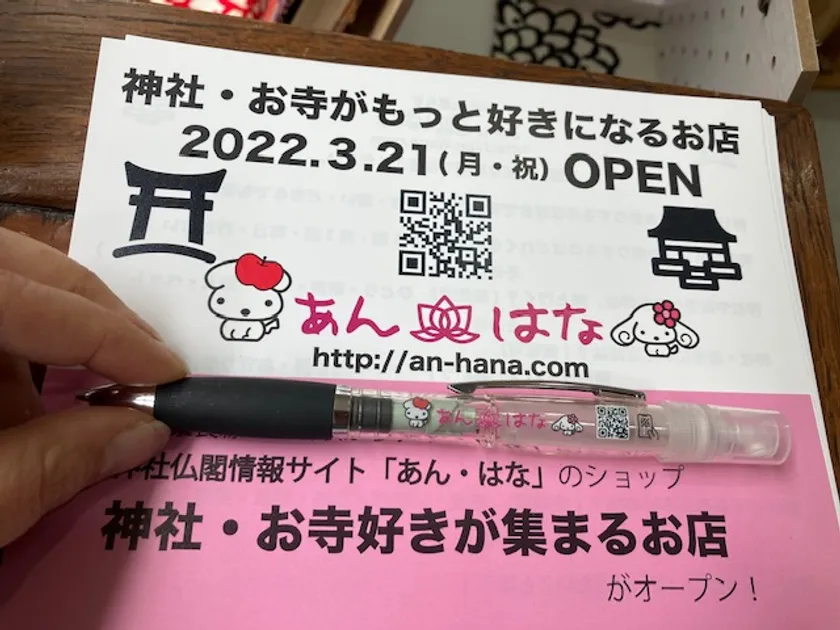 神社・お寺がもっと好きになるお店
2022.3.21(月・祝) OPEN
あん はな
http://an-hana.com
あん はな
神社仏閣情報サイト「あん・はな」のショップ
神社・お寺好きが集まるお店
がオープン！